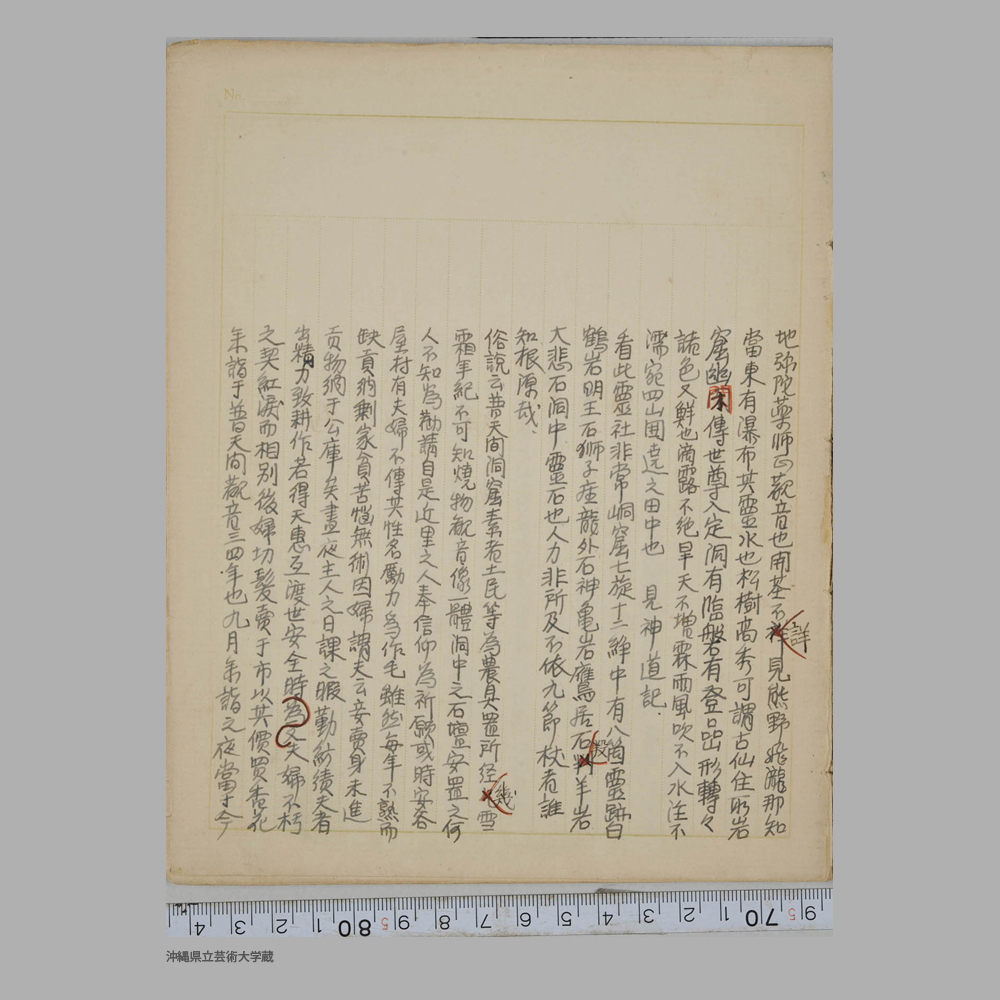 地弥陀薬師正観音也開基不詳見熊野飛瀧那知
當東有瀑布其霊水也松樹高秀可謂古仙住所岩
窟幽閑傳世尊入定洞有臨盤石有登品出形轉々
諸色又鮮也滴露不絶旱天不増霖雨風吹不入水注不
濡宛四山囲遶之田中也 見神道記.
看此霊社非常峒窟七旋十二繂中有八箇霊跡白
鶴岩明王石獅子座龍外石神亀岩鷹居石羊岩
大悲石洞中霊石也人力非所及不依九節杖者誰
知根源哉、
俗説云昔天間洞窟素者土民等為農具置所経幾雪
霜年紀不可知焼物観音像一體洞中之石壇安置之何
人不知為勧請自是近里之人奉信仰為祈願或時安谷
屋村有夫婦不傳其性名勵力為作毛雖然毎年不熟而
缺貢納剰家貧苦惱無術因婦謂夫云妾賣身未進
貢物納于公庫矣晝夜主人之日課之暇勤紡績夫者
出精力致耕作若得天惠互渡世安全時為又夫婦不朽
之契紅涙而相別後婦切髪賣于市以其價買香花
年詣于普天間観音三四年也九月年詣之夜當于今
No.
沖縄県立芸術大学蔵
4 3 2 1 80 9 8 7 6 5 4 3 2 1 70 9